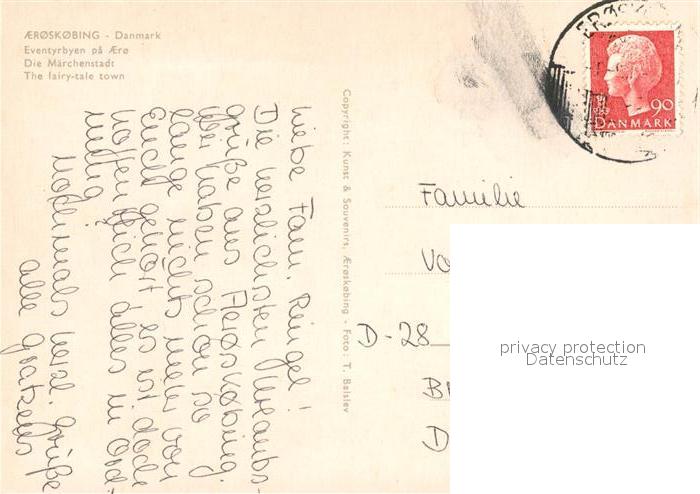 ÆRØSKØBING - Danmark
Eventyrbyen på Ærø
Die Märchenstadt
The fairy-tale town
Liebe Fam. Ringel!
Die herzlichsten Urlaubs-
grüße aus Aerösköbing.
Wir haben schon so
lange nichts mehr von
Euch gehört es ist doch
hoffentlich alles in Ord-
nung
Nochmals herzl. Grüße
alle
Copyright: Kunst & Souvenirs, Ærøskøbing - Foto: T. Balslev
90
DANMARK
Familie
D-28
privacy protection
Datenschutz